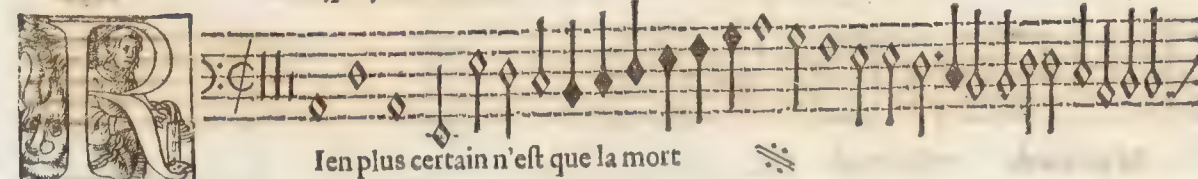 R
Ien plus certain n'eſt que la mort